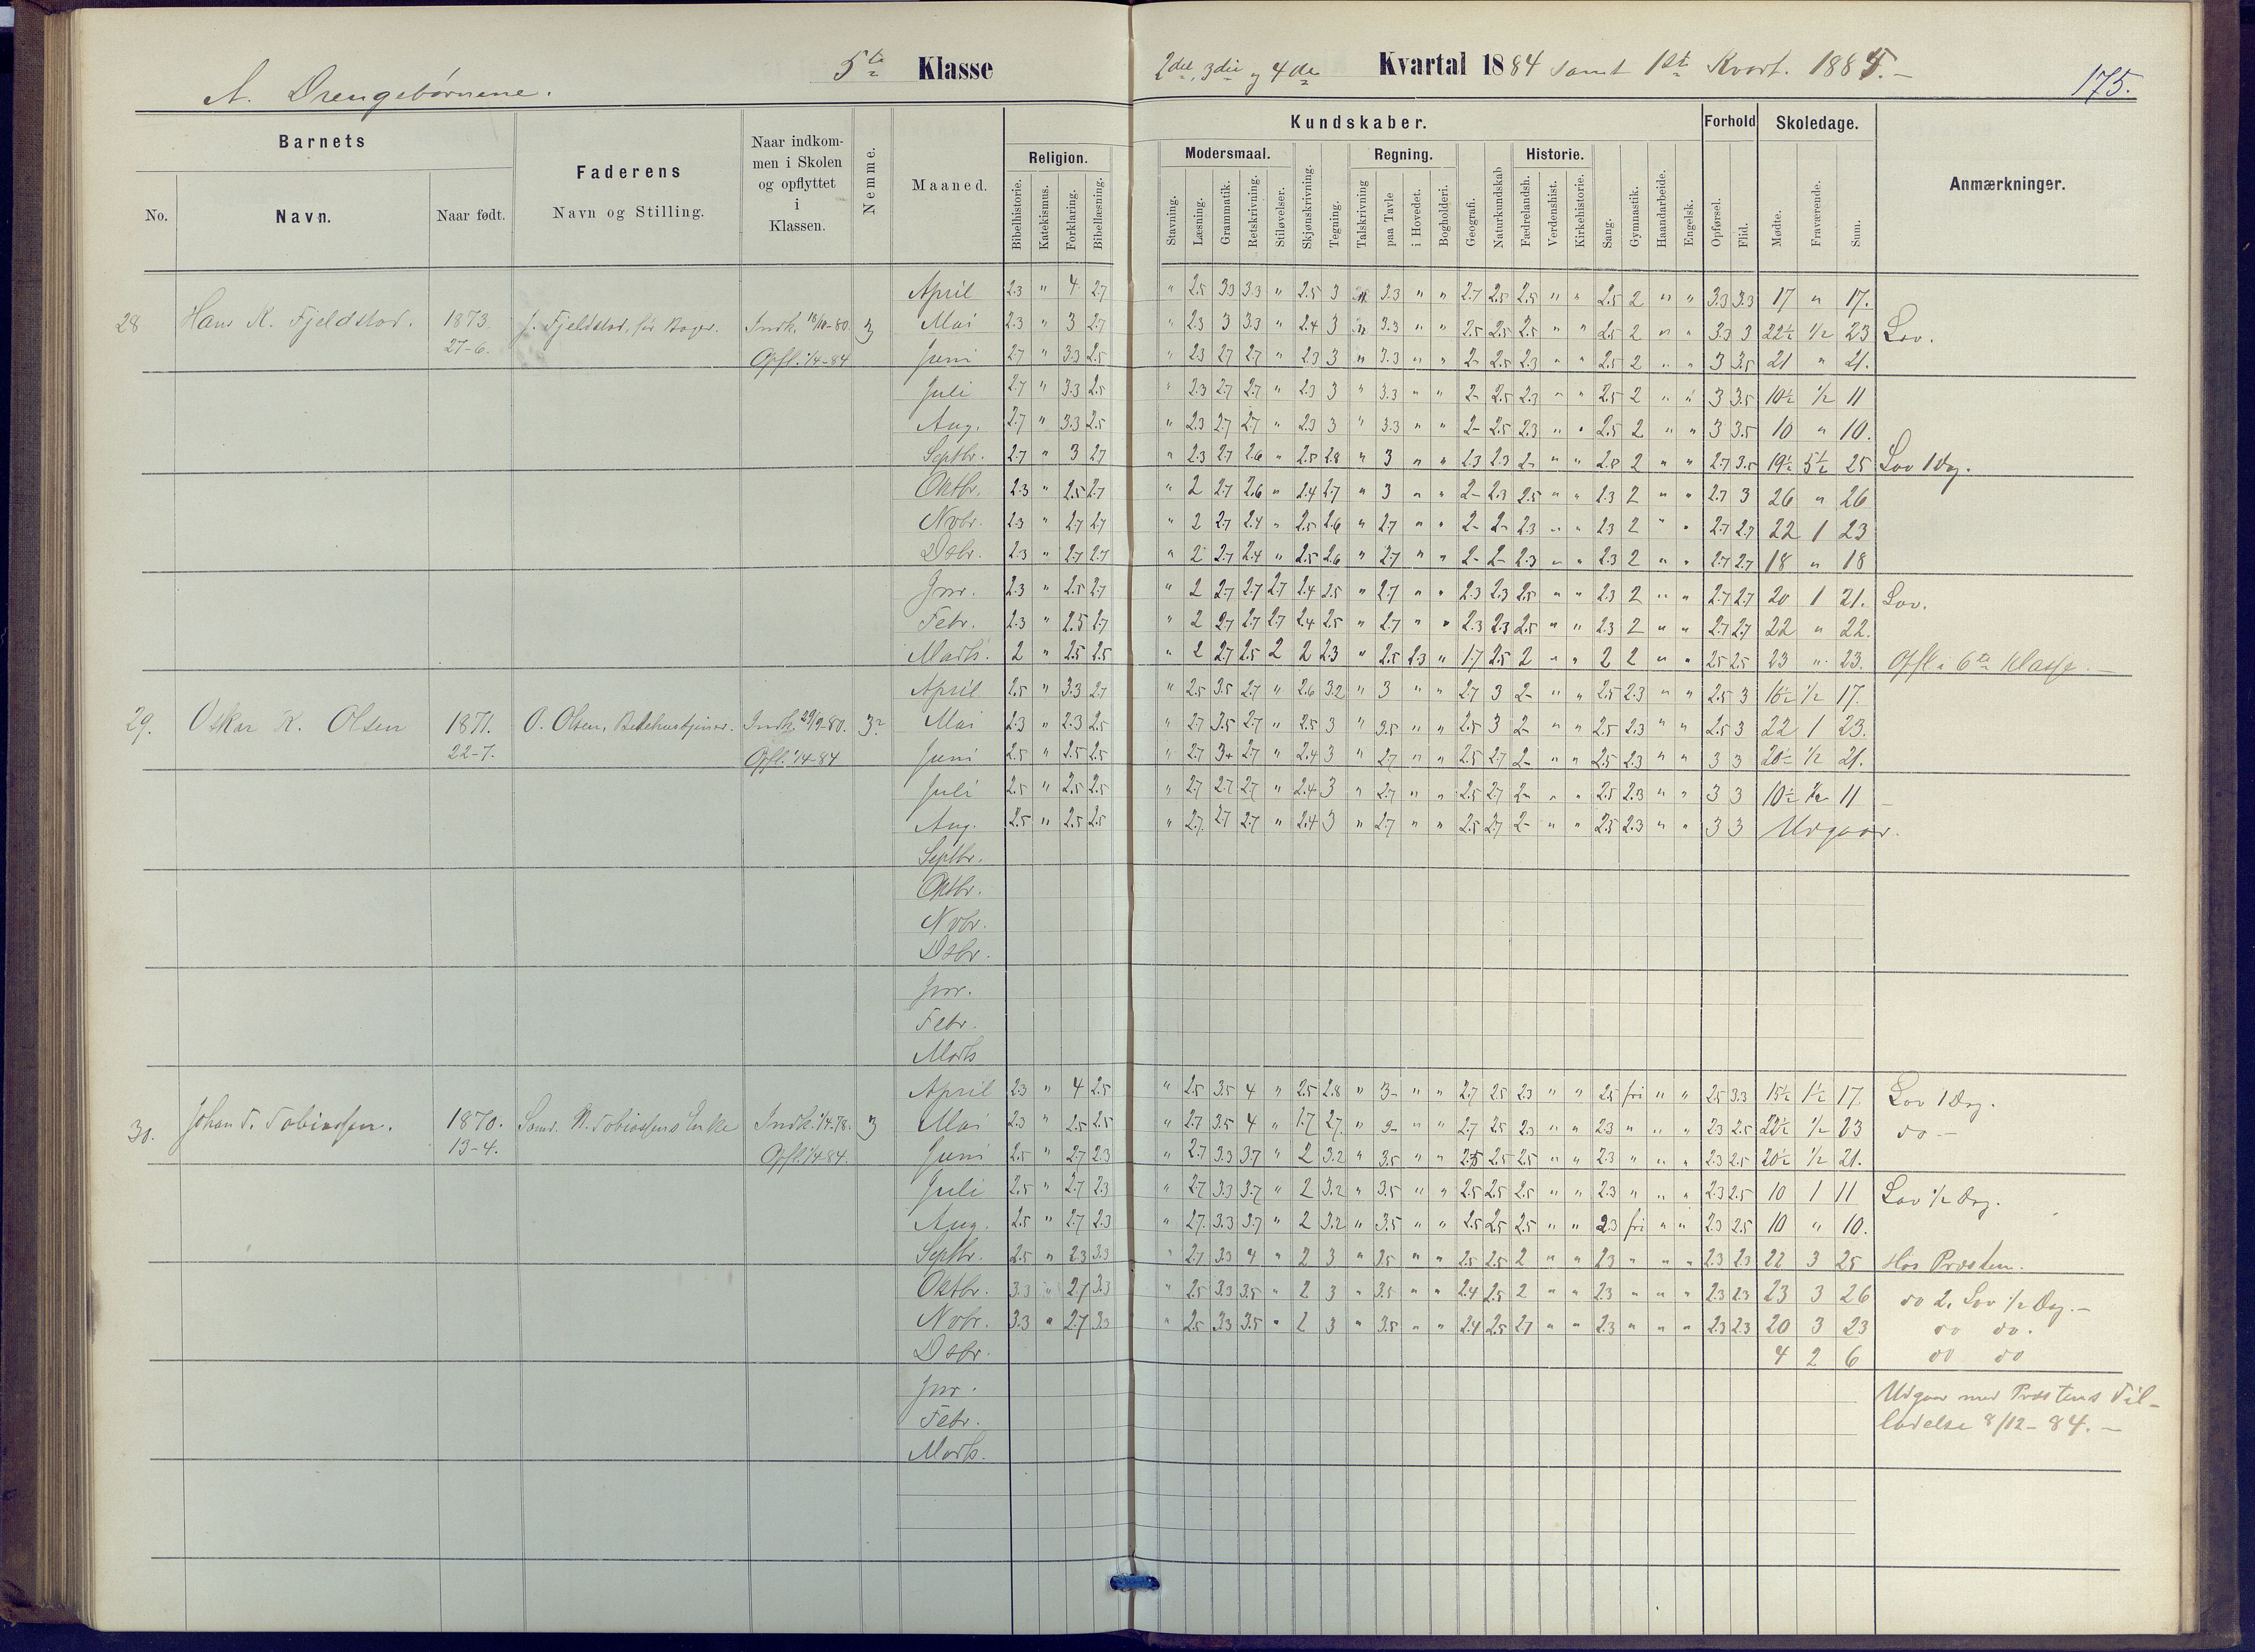 5te Klasse 2det, 3die og 4de Kvartal 1884 samt 1ste Kvart. 1885.-
A. Drengebørnene. 175.
Barnets
No. Navn. Naar født.
Faderens
Navn og Stilling.
Naar indkom-
men i Skolen
og opflyttet
i
Klassen.
Nemme.
Maaned.
Kundskaber.
Religion.
Bibelhistorie. Katekismus. Forklaring. Bibellæsning.
Modersmaal.
Stavning. Læsning. Grammatik. Retskrivning. Stiløvelser.
Skjønskrivning. Tegning.
Regning.
Talskrivning paa Tavle i Hovedet. Bogholderi.
Geografi. Naturkundskab
Historie.
Fædrelandsh. Verdenshist. Kirkehistorie.
Sang. Gymnastik. Haandarbeide. Engelsk.
Forhold
Opførsel. Flid.
Skoledage.
Mødte. Fraværende. Sum.
Anmærkninger.
April 2.3 " 4 2.7 " 2.5 3.3 3.3 " 2.5 3 " 3.3 " " 2.7 2.5 2.5 " " 2.5 2 " " 3.3 3.3 17 " 17.
28 Hans K. Fjeldstad. 1873. J. Fjeldstad, før Bager. Indk. 18/10-80. 3 Mai 2.3 " 3 2.7 " 2.3 3 3.3 " 2.4 3 " 3.3 " " 2.5 2.5 2.5 " " 2.5 2 " " 3.3 3 22½ ½ 23 Lov.
27-6. Opfl. 1/4-84 Juni 2.7 " 3.3 2.5 " 2.3 2.7 2.7 " 2.3 3 " 3.3 " " 2- 2.5 2.3 " " 2.5 2 " " 3 3.5 21 " 21.
Juli 2.7 " 3.3 2.5 " 2.3 2.7 2.7 " 2.3 3 " 3.3 " " 2- 2.5 2.3 " " 2.5 2 " " 3 3.5 10½ ½ 11
Aug. 2.7 " 3.3 2.5 " 2.3 2.7 2.7 " 2.3 3 " 3.3 " " 2- 2.5 2.3 " " 2.5 2 " " 3 3.5 10 " 10.
Septbr. 2.7 " 3 2.7 " 2.3 2.7 2.6 " 2.5 2.8 " 3 " " 2.3 2.3 2- " " 2.8 2 " " 2.7 3.5 19½ 5½ 25 Lov 1 Dag.
Oktbr. 2.3 " 2.5 2.7 " 2 2.7 2.6 " 2.4 2.7 " 3 " " 2- 2.3 2.5 " " 2.3 2 " " 2.7 3 26 " 26
Novbr. 2.3 " 2.7 2.7 " 2 2.7 2.4 " 2.5 2.6 " 2.7 " " 2- 2- 2.3 " " 2.3 2 " " 2.7 2.7 22 1 23
Dsbr. 2.3 " 2.7 2.7 " 2 2.7 2.4 " 2.5 2.6 " 2.7 " " 2- 2- 2.3 " " 2.3 2 " " 2.7 2.7 18 " 18
Jnr. 2.3 " 2.5 2.7 " 2 2.7 2.7 2.7 2.4 2.5 " 2.7 " " 2.3 2.3 2.5 " " 2.3 2 " " 2.7 2.7 20 1 21. Lov.
Febr. 2.3 " 2.5 2.7 " 2 2.7 2.7 2.7 2.4 2.5 " 2.7 " " 2.3 2.3 2.5 " " 2.3 2 " " 2.7 2.7 22 " 22.
Marts. 2 " 2.5 2.5 " 2 2.7 2.5 2 2 2.3 " 2.5 2.3 " 1.7 2.5 2 " " 2 2 " " 2.5 2.5 23 " 23. Opfl. i 6te Klasse.-
April 2.5 " 3.3 2.7 " 2.5 3.5 2.7 " 2.6 3.2 " 3 " " 2.7 3 2- " " 2.5 2.3 " " 2.5 3 16½ ½ 17.
29. Oskar K. Olsen 1871. O. Olsen, Bedehustjener. Indk. 29/9-80. 3? Mai 2.3 " 2.3 2.5 " 2.7 3.5 2.7 " 2.5 3 " 3.5 " " 2.5 3 2- " " 2.5 2.3 " " 2.5 3 22 1 23.
22-7. Opfl. 1/4-84 Juni 2.5 " 2.5 2.5 " 2.7 3+ 2.7 " 2.4 3 " 2.7 " " 2.5 2.7 2- " " 2.5 2.3 " " 3 3 20½ ½ 21.
Juli 2.5 " 2.5 2.5 " 2.7 2.7 2.7 " 2.4 3 " 2.7 " " 2.5 2.7 2- " " 2.5 2.3 " " 3 3 10½ ½ 11 -
Aug. 2.5 " 2.5 2.5 " 2.7 2.7 2.7 " 2.4 3 " 2.7 " " 2.5 2.7 2- " " 2.5 2.3 " " 3 3 Udgaar.
Septbr.
Oktbr.
Novbr.
Dsbr.
Jnr.
Febr.
Marts
April 2.3 " 4 2.5 " 2.5 3.5 4 " 2.5 2.8 " 3- " " 2.7 2.5 2.3 " " 2.5 fri " " 2.5 3.3 15½ 1½ 17. Lov 1 Dag.
30. Johan T. Tobiassen. 1870. Sømd. N. Tobiassens Enke Indk. 1/4-78. 3 Mai 2.3 " 2.5 2.5 " 2.7 3.5 4 " 1.7 2.7. " 3- " " 2.7 2.5 2.3 " " 2.3 " " " 2.3 2.5 22½ ½ 23 do -
13-4. Opfl. 1/4 84. Juni 2.5 " 2.7 2.3 " 2.7 3.3 3.7 " 2 3.2 " 3.5 " " 2.5 2.5 2.5 " " 2.3 " " " 2.3 2.5 20½ ½ 21.
Juli 2.5 " 2.7 2.3 " 2.7 3.3 3.7 " 2 3.2 " 3.5 " " 2.5 2.5 2.5 " " 2.3 " " " 2.3 2.5 10 1 11 Lov ½ Dag.
Aug. 2.5 " 2.7 2.3 " 2.7 3.3 3.7 " 2 3.2 " 3.5 " " 2.5 2.5 2.5 " " 2.3 fri " " 2.3 2.5 10 " 10.
Septbr. 2.5 " 2.3 3.3 " 2.7 3.3 4 " 2 3 " 3.5 " " 2.5 2.5 2 " " 2.3 " " " 2.3 2.3 22 3 25 Hos Præsten.
Oktbr. 3.3 " 2.7 3.3 " 2.5 3.3 3.5 " 2 3 " 3.5 " " 2.4 2.5 2 " " 2.3 " " " 2.3 2.3 23 3 26 do 2. Lov ½ Dag.-
Novbr. 3.3 " 2.7 3.3 " 2.5 3.3 3.5 " 2 3 " 3.5 " " 2.4 2.5 2.7 " " 2.3 " " " 2.3 2.3 20 3 23 do do.
Dsbr. 4 2 6 do do
Jnr. Udgaar med Præstens Til-
Febr. ladelse 8/12-84.-
Marts.